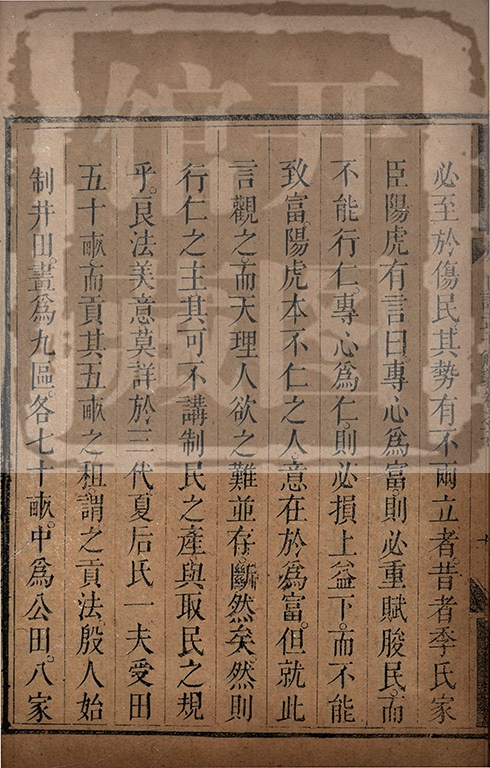 必至於傷民其勢有不兩立者。昔者季氏家
臣陽虎有言曰。專心爲富。則必重賦朘民。而
不能行仁。專心爲仁。則必損上益下。而不能
致富。陽虎本不仁之人。意在於爲富。但就此
言觀之。而天理人欲之難並存。斷然矣。然則
行仁之主。其可不講制民之產與取民之規
乎。良法美意。莫詳於三代。夏后氏一夫受田
五十畝。而貢其五畝之租。謂之貢法。殷人始
制井田。畫爲九區。各七十畝。中爲公田。八家